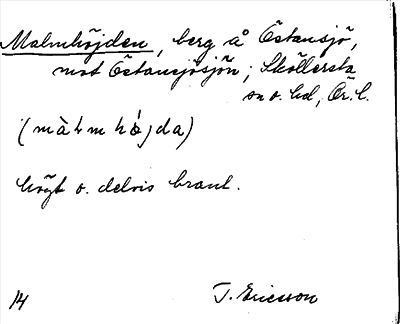 Malmhöjden, berg å Östansjö,
mot Östansjösjön; Sköllersta
sn o. hd, Ör. l.
(màlmhöjda)
högt o. delvis brant.
14 T. Ericsson